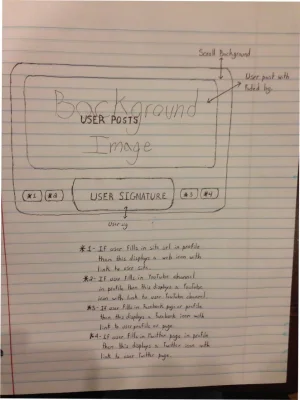 Scroll Background
User post with
faded bg.
Background
USER POSTS
Image
*1
*2
USER SIGNATURE
*3
*4
User sig
*1- IF user fills in site url in profile
then this displays a web icon with
link to user site.
*2- IF user fills in YouTube channel
in profile then this displays a YouTube
icon with link to user YouTube channel.
*3- IF user fills in Facebook page in profile
then this displays a Facebook icon with
link to user profile or page.
*4- IF user fills in Twitter page in profile
then this displays a Twitter icon with
link to user Twitter page.